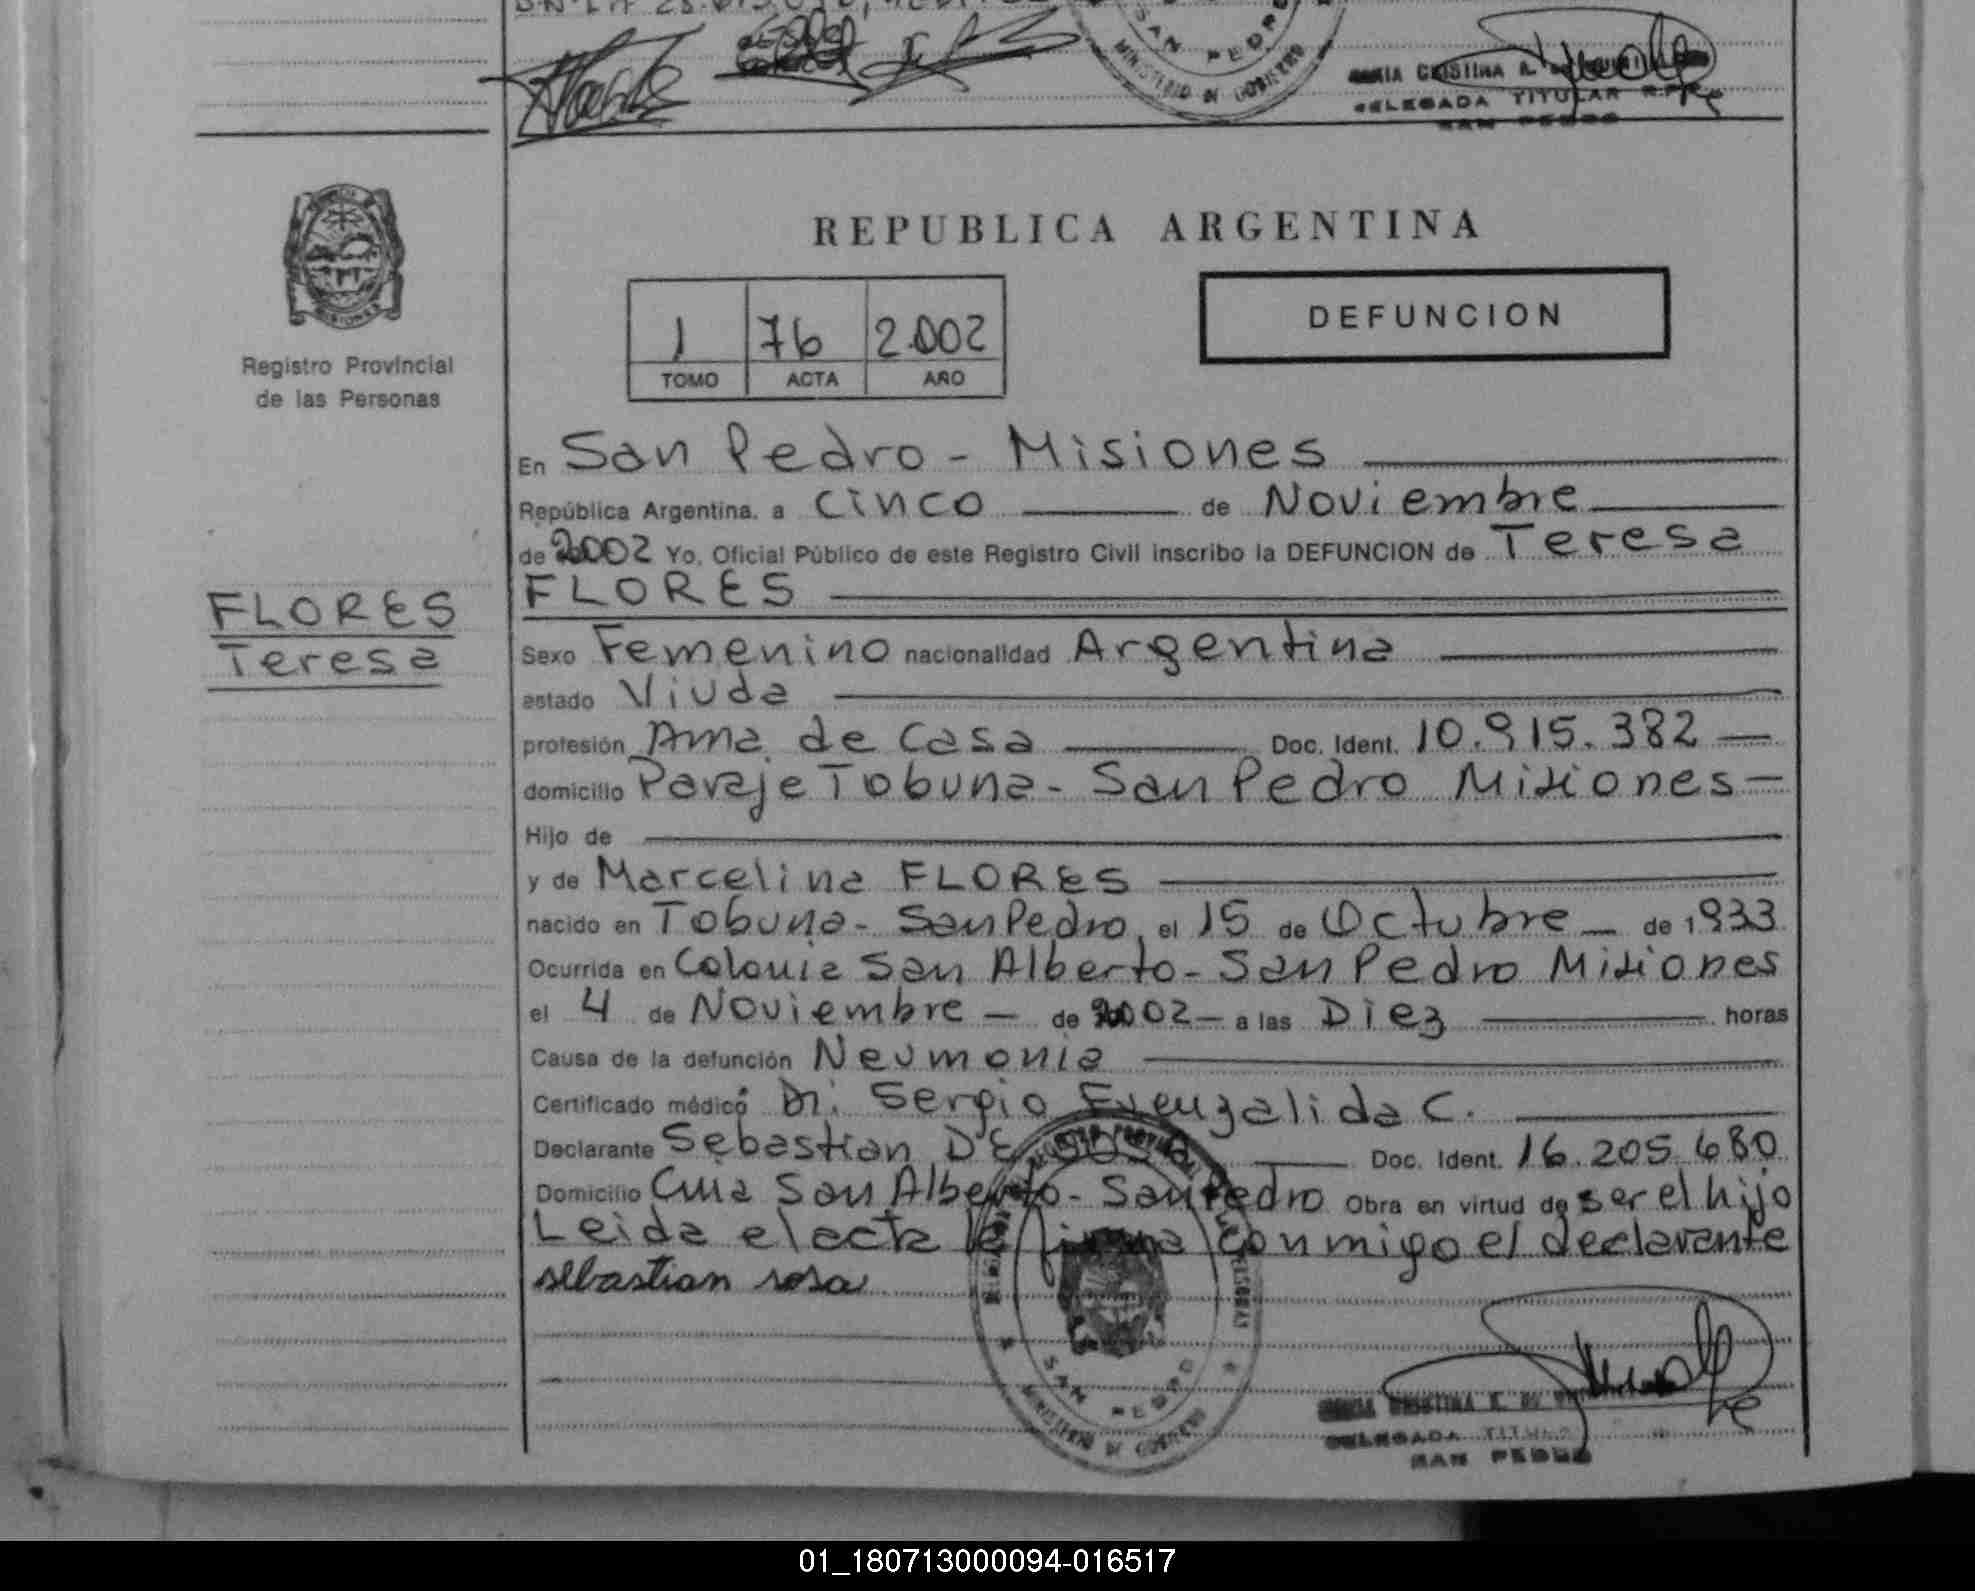 SAN PEDRO
MINISTERIO DE GOBIERNO
DELEGADA TITULAR R.P.P.
SAN PEDRO
REPUBLICA ARGENTINA
1 76 2.002
TOMO ACTA AÑO
DEFUNCION
Registro Provincial
de las Personas
FLORES
Teresa
En San Pedro - Misiones
República Argentina, a cinco de Noviembre
de 2002 Yo, Oficial Público de este Registro Civil inscribo la DEFUNCION de Teresa
FLORES
Sexo Femenino nacionalidad Argentina
estado Viuda
profesión Ama de Casa Doc. Ident. 10.915.382
domicilio Paraje Tobuna - San Pedro Misiones
Hijo de
y de Marcelina FLORES
nacido en Tobuna - San Pedro, el 15 de Octubre de 1933
Ocurrida en Colonia San Alberto - San Pedro Misiones
el 4 de Noviembre de 2002 a las Diez horas
Causa de la defunción Neumonia
Certificado médico Dr. Sergio Fuenzalida C.
Declarante Sebastian DE SOSA Doc. Ident. 16.205.680
Domicilio Cnia San Alberto - San Pedro Obra en virtud de ser el hijo
Leida el acta la firma conmigo el declarante
sebastian sosa
SAN PEDRO
MINISTERIO DE GOBIERNO
DELEGADA TITULAR
SAN PEDRO
01_180713000094-016517